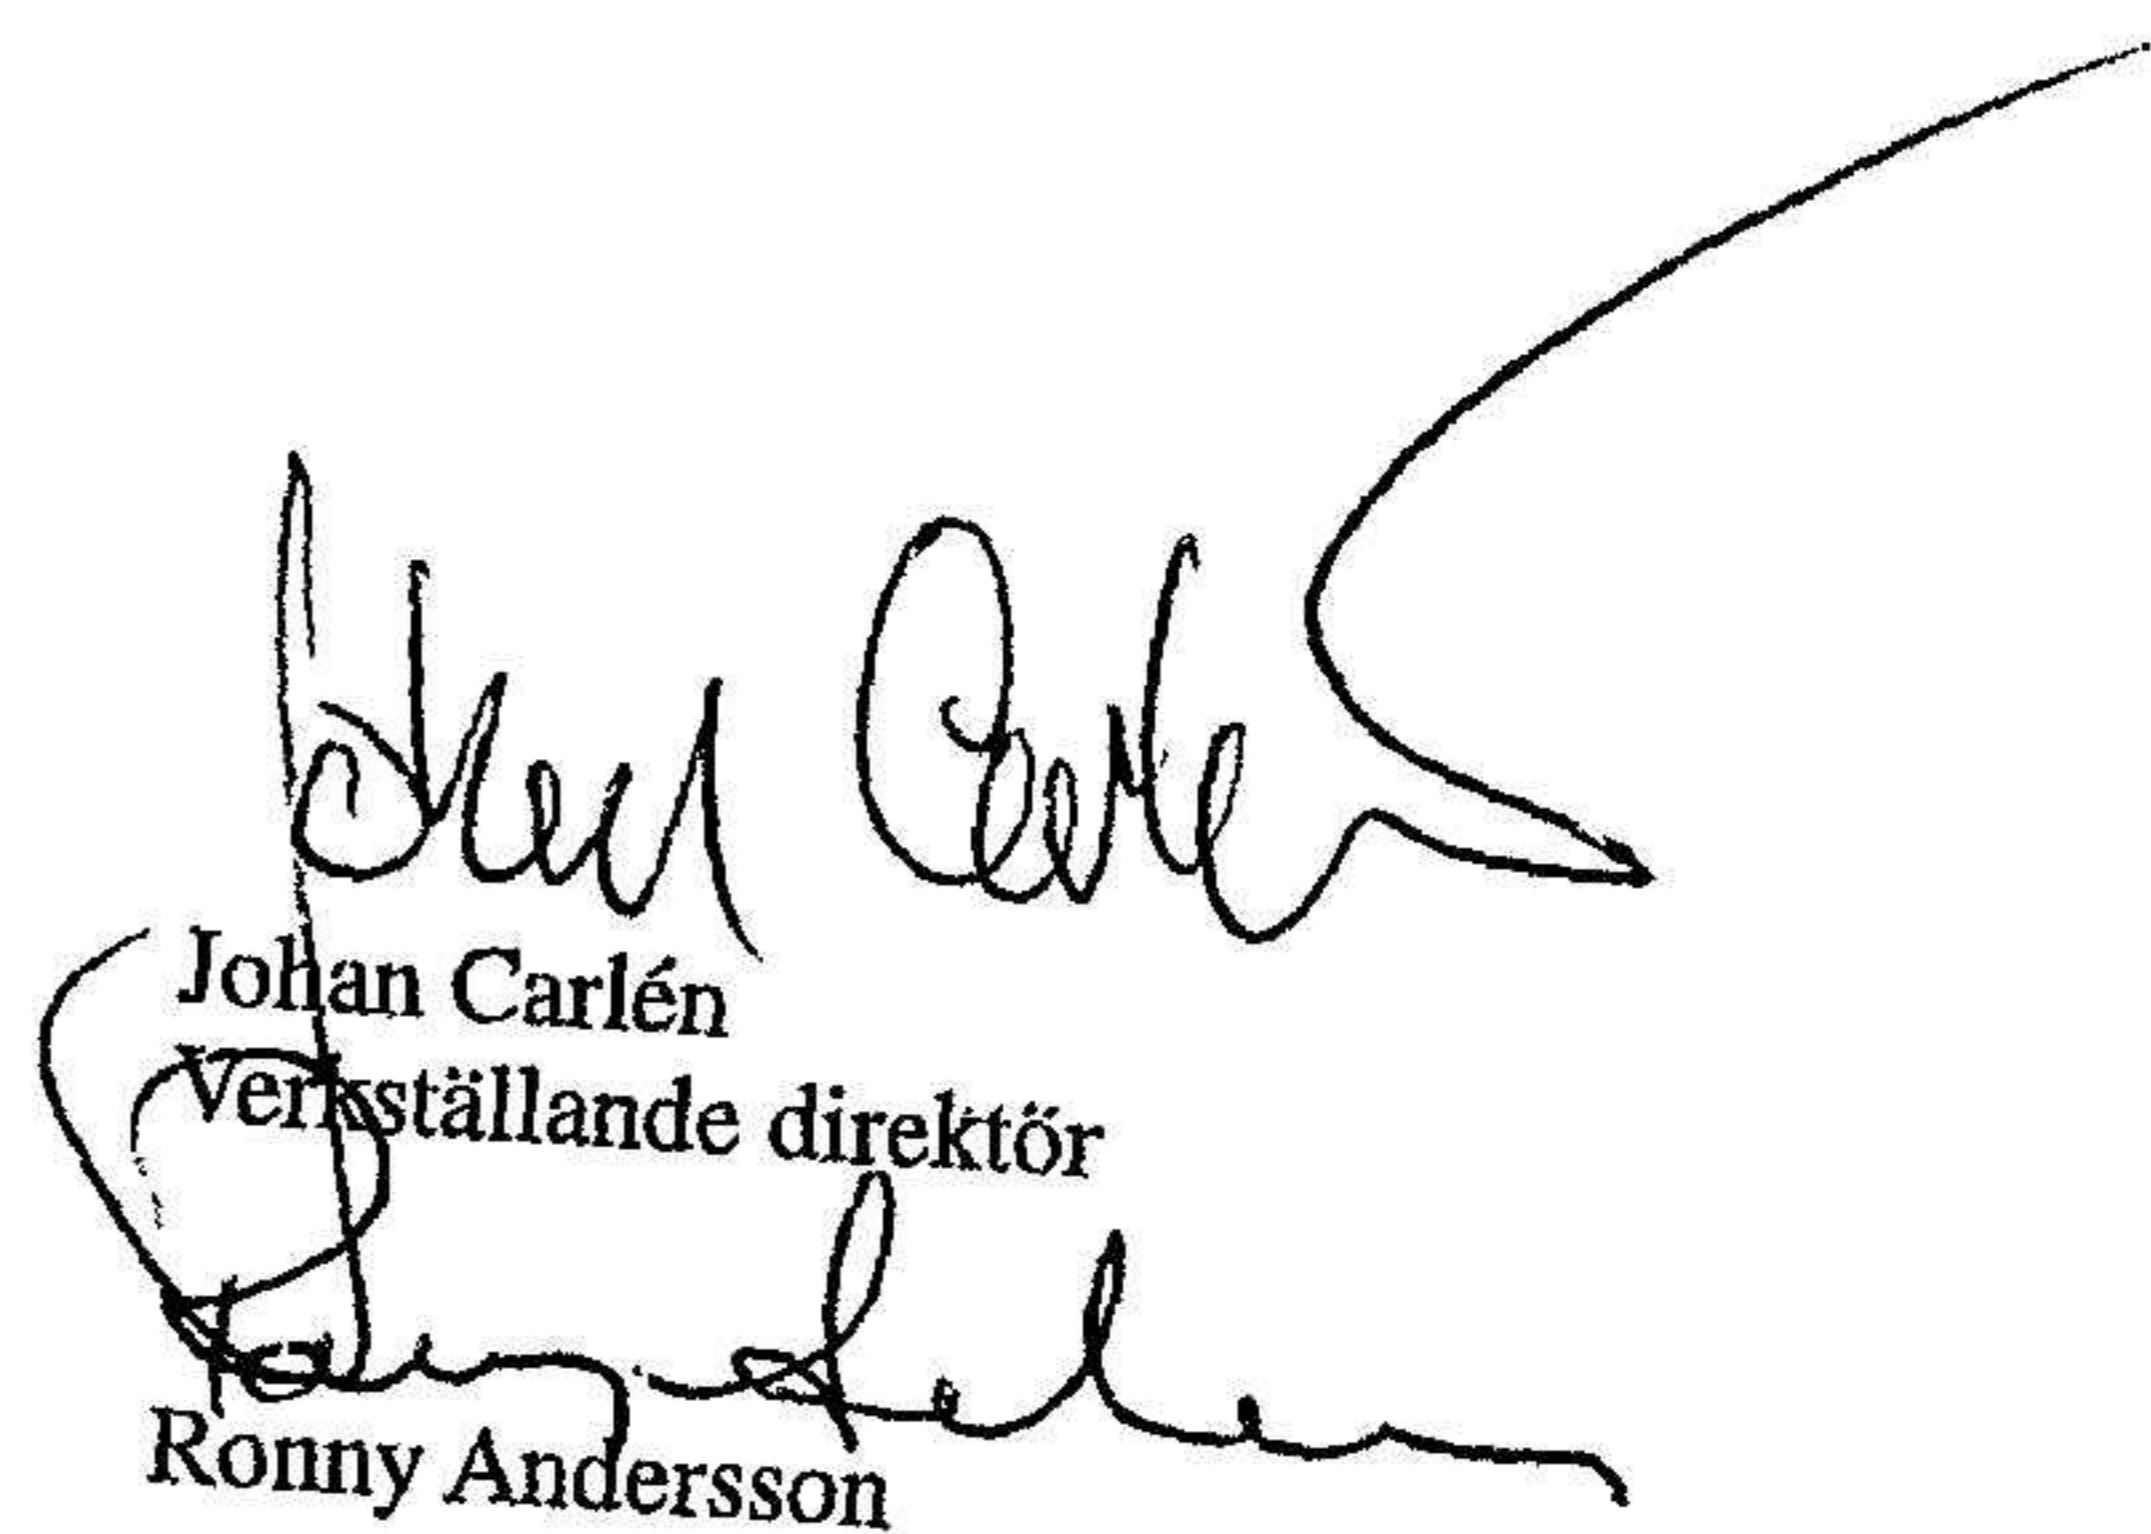 Johan Carlén
Verkställande direktör
Ronny Andersson